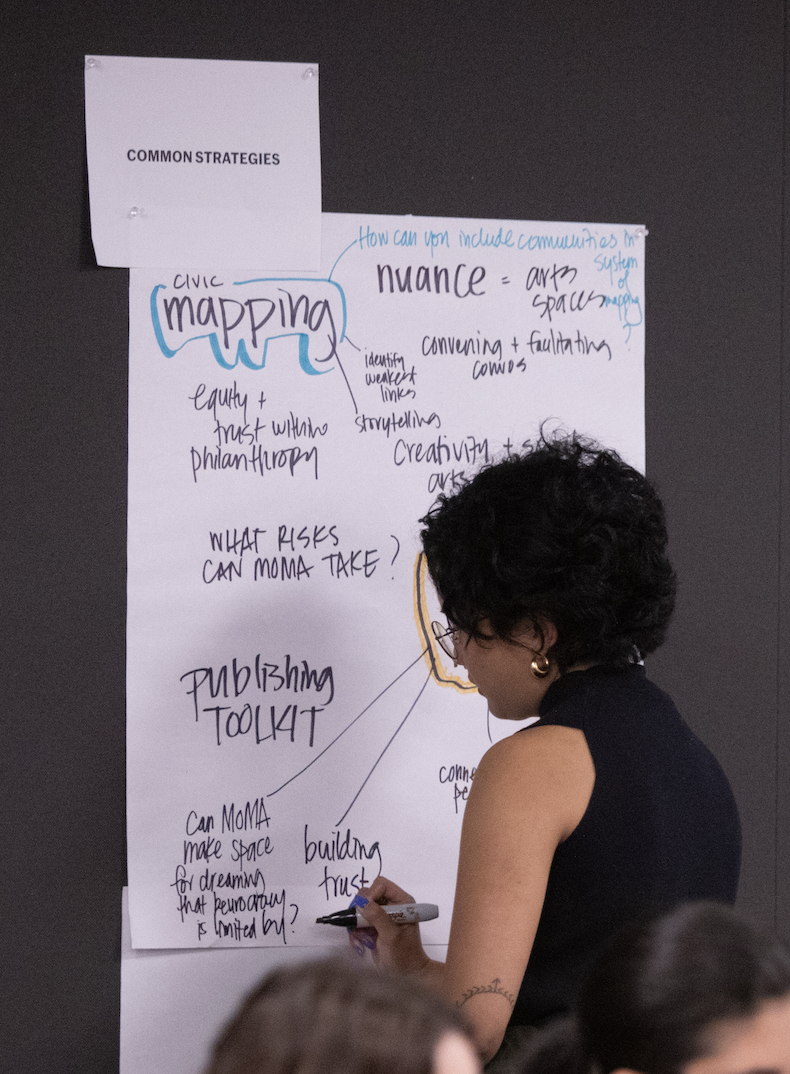 COMMON STRATEGIES
How can you include communities in
system
of
mapping
?
CIVIC
mapping
nuance = arts
spaces
identify
weakest
links
storytelling
convening + facilitating
convos
equity +
trust within
philanthropy
Creativity +
arts
WHAT RISKS
CAN MOMA TAKE?
publishing
TOOLKIT
Can MOMA
make space
for dreaming
that beurocracy
is limited by?
building
trust